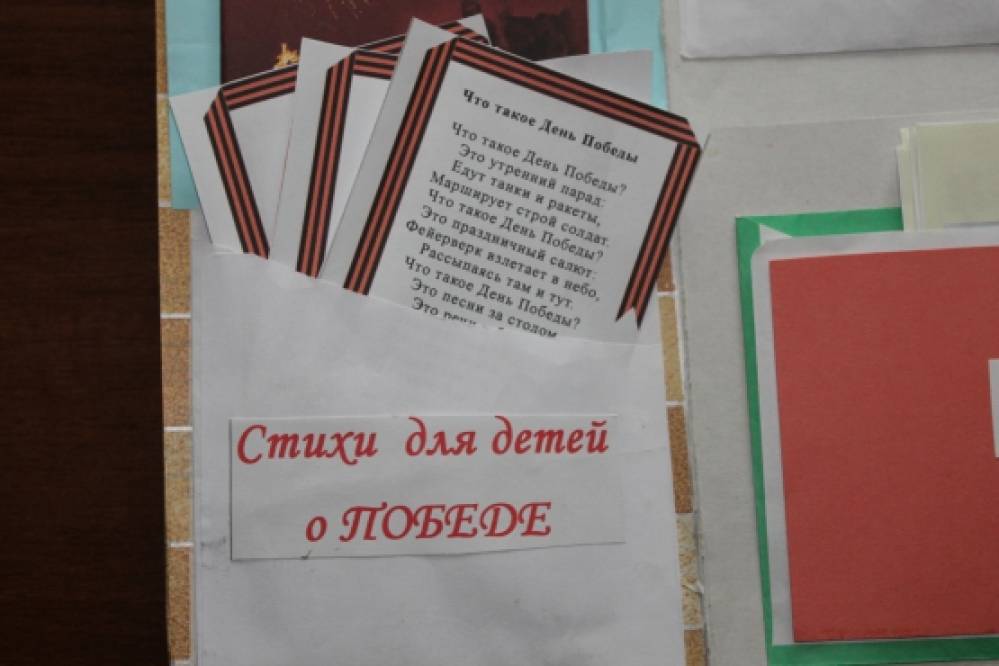 Что такое День Победы
Что такое День Победы?
Это утренний парад:
Едут танки и ракеты,
Марширует строй солдат.
Что такое День Победы?
Это праздничный салют:
Фейерверк взлетает в небо,
Рассыпаясь там и тут.
Что такое День Победы?
Это песни за столом
Это
Стихи для детей
о ПОБЕДЕ